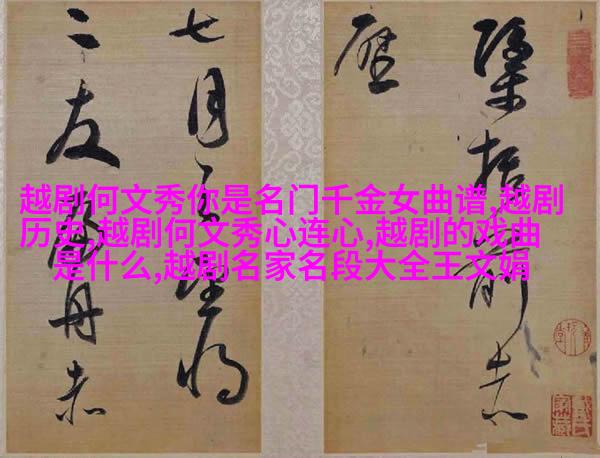 越剧何文秀你是名门千金女曲谱,越剧
历史,越剧何文秀心连心,越剧的戏曲
是什么,越剧名家名段大全王文娟
括前赤
壁
七月
二友舟赤